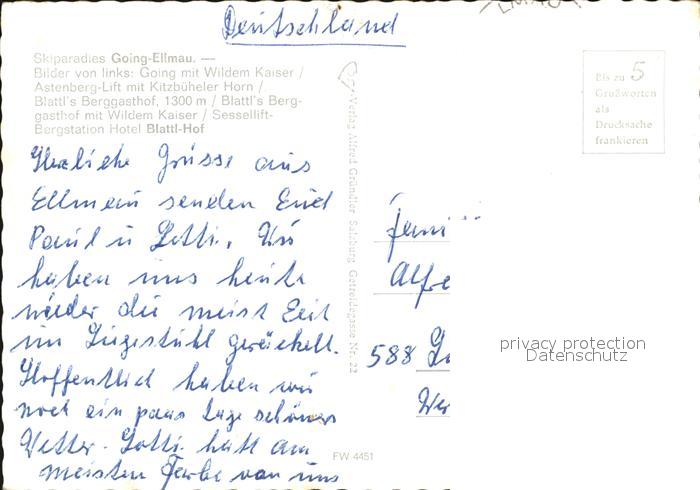 Deutschland
Skiparadies Going-Ellmau. —
Bilder von links: Going mit Wildem Kaiser /
Astenberg-Lift mit Kitzbüheler Horn /
Blattl's Berggasthof, 1300 m / Blattl's Berg-
gasthof mit Wildem Kaiser / Sessellift-
Bergstation Hotel Blattl-Hof
Bis zu 5
Grußworten
als
Drucksache
frankieren
Herzliche Grüsse aus
Ellmau senden Euch
Paul u Lotti. Wir
haben uns heute
wieder die meist Zeit
im Liegestuhl geräckelt.
Hoffentlich haben wir
noch ein paar Tage schönes
Wetter. Lotti hat am
meisten Farbe von uns
Verlag Alfred Gründler Salzburg Getreidegasse Nr. 22
Fami
Alfre
588
FW 4451
privacy protection
Datenschutz